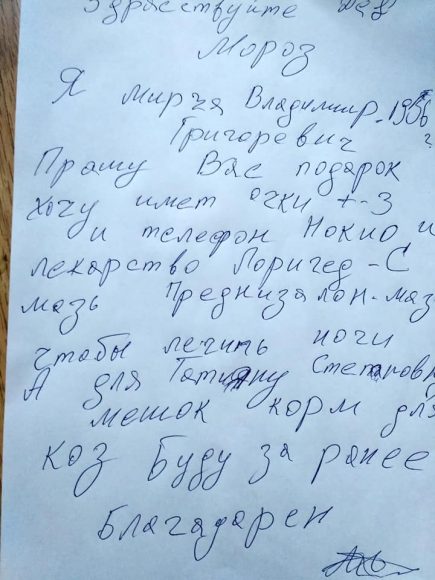 Здравствуйте Дед
Мороз
Я Мирча Владимир 1956
Григоревич г
Прашу Вас подарок
хочу имет очки +-3
и телефон Нокио и
лекарство Лоригед-С
мазь Преднизалон-маз
чтобы лечить ночи
А для Татияну Степановн
мешок корм для
коз Буду за ранее
благадарен